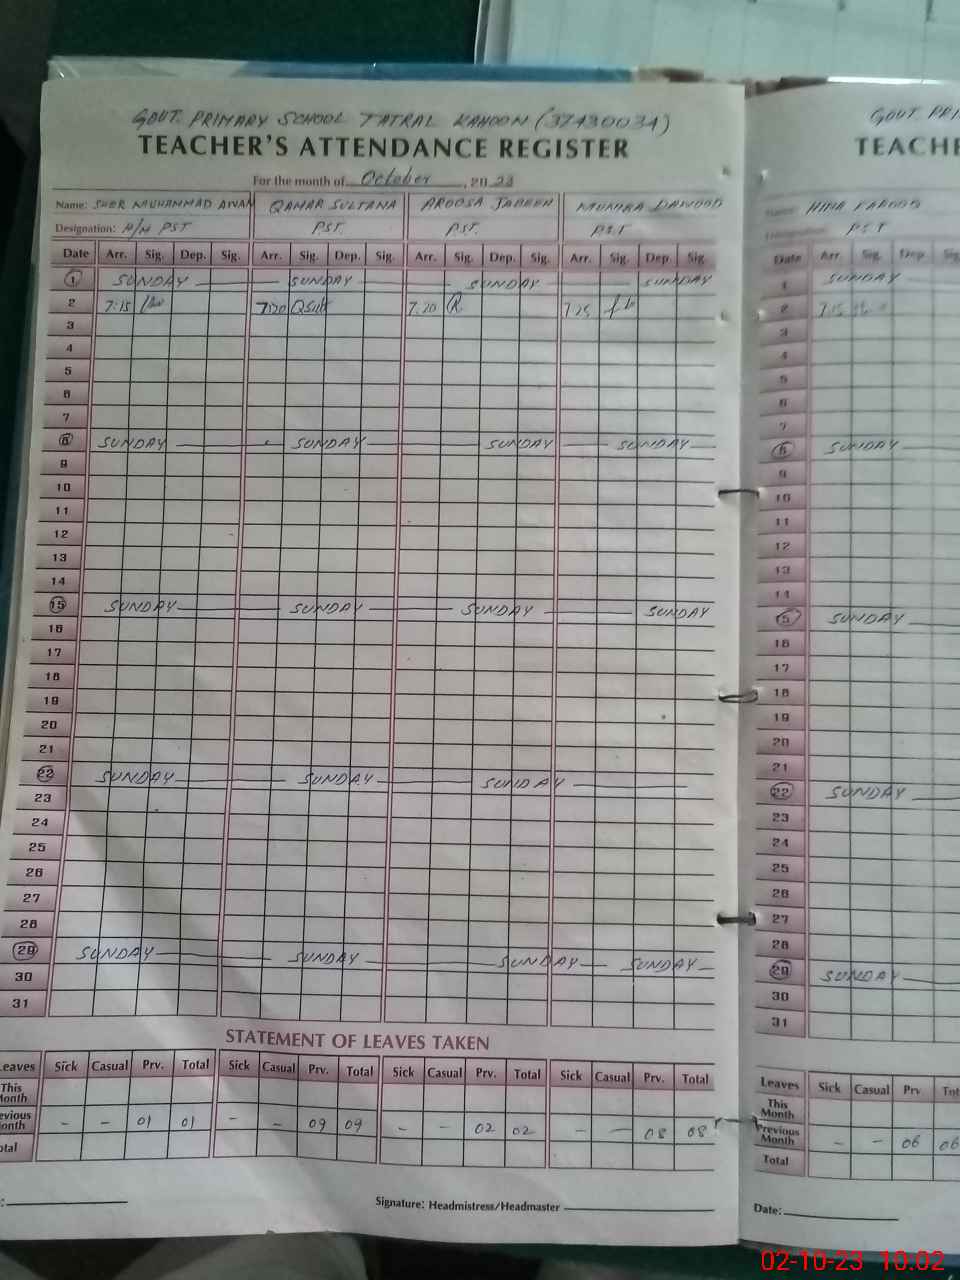 GOVT. PRIMARY SCHOOL TATRAL KAHOON (37430034)
TEACHER'S ATTENDANCE REGISTER
For the month of October, 2023
Name: SHER MUHAMMAD AWAN QAMAR SULTANA AROOSA JABEEN MUNIRA DAWOOD
Designation: H/M PST PST. PST. PST
Date Arr. Sig. Dep. Sig. Arr. Sig. Dep. Sig. Arr. Sig. Dep. Sig. Arr. Sig. Dep. Sig.
1 SUNDAY SUNDAY SUNDAY SUNDAY
2 7:15 7:20 QSult 7.20 7.25
3
4
5
6
7
8 SUNDAY SUNDAY SUNDAY SUNDAY
9
10
11
12
13
14
15 SUNDAY SUNDAY SUNDAY SUNDAY
16
17
18
19
20
21
22 SUNDAY SUNDAY SUNDAY
23
24
25
26
27
28
29 SUNDAY SUNDAY SUNDAY SUNDAY
30
31
STATEMENT OF LEAVES TAKEN
Leaves Sick Casual Prv. Total Sick Casual Prv. Total Sick Casual Prv. Total Sick Casual Prv. Total
This Month
Previous Month - - 01 01 - - 09 09 - - 02 02 - - 08 08
Total
Signature: Headmistress/Headmaster
GOVT PRI
TEACHE
Name: HINA
Designation: PST
Date Arr. Sig. Dep. Sig
1 SUNDAY
2 7.15
3
4
5
6
7
8 SUNDAY
9
10
11
12
13
14
15 SUNDAY
16
17
18
19
20
21
22 SUNDAY
23
24
25
26
27
28
29 SUNDAY
30
31
Leaves Sick Casual Prv Tot
This Month
Previous Month - - 06 06
Total
Date:
02-10-23 10.02